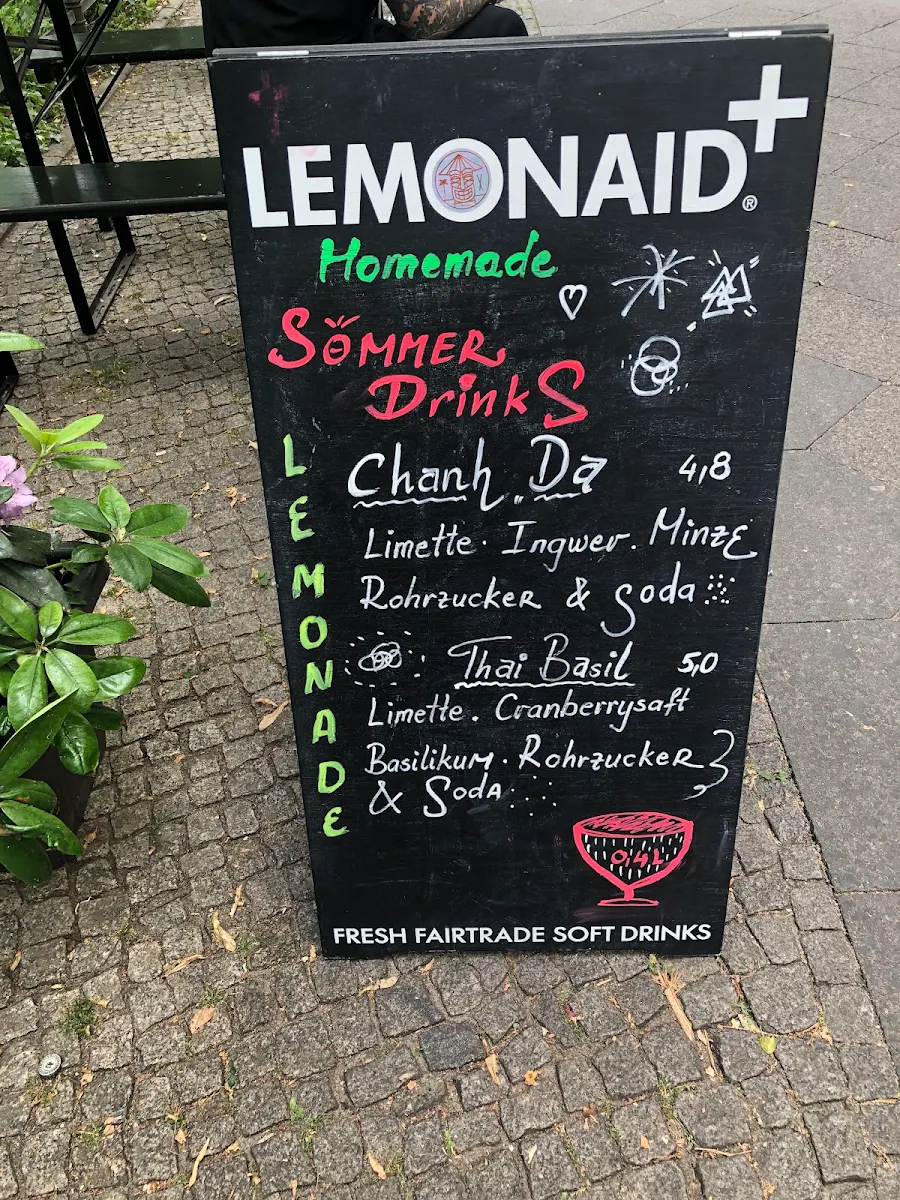 LEMONAID+®
Homemade
SÖMMER
DrinkS
LEMONADE
Chanh Da 4,8
Limette · Ingwer · Minze
Rohrzucker & Soda
Thai Basil 5,0
Limette . Cranberrysaft
Basilikum · Rohrzucker
& Soda
0,4L
FRESH FAIRTRADE SOFT DRINKS